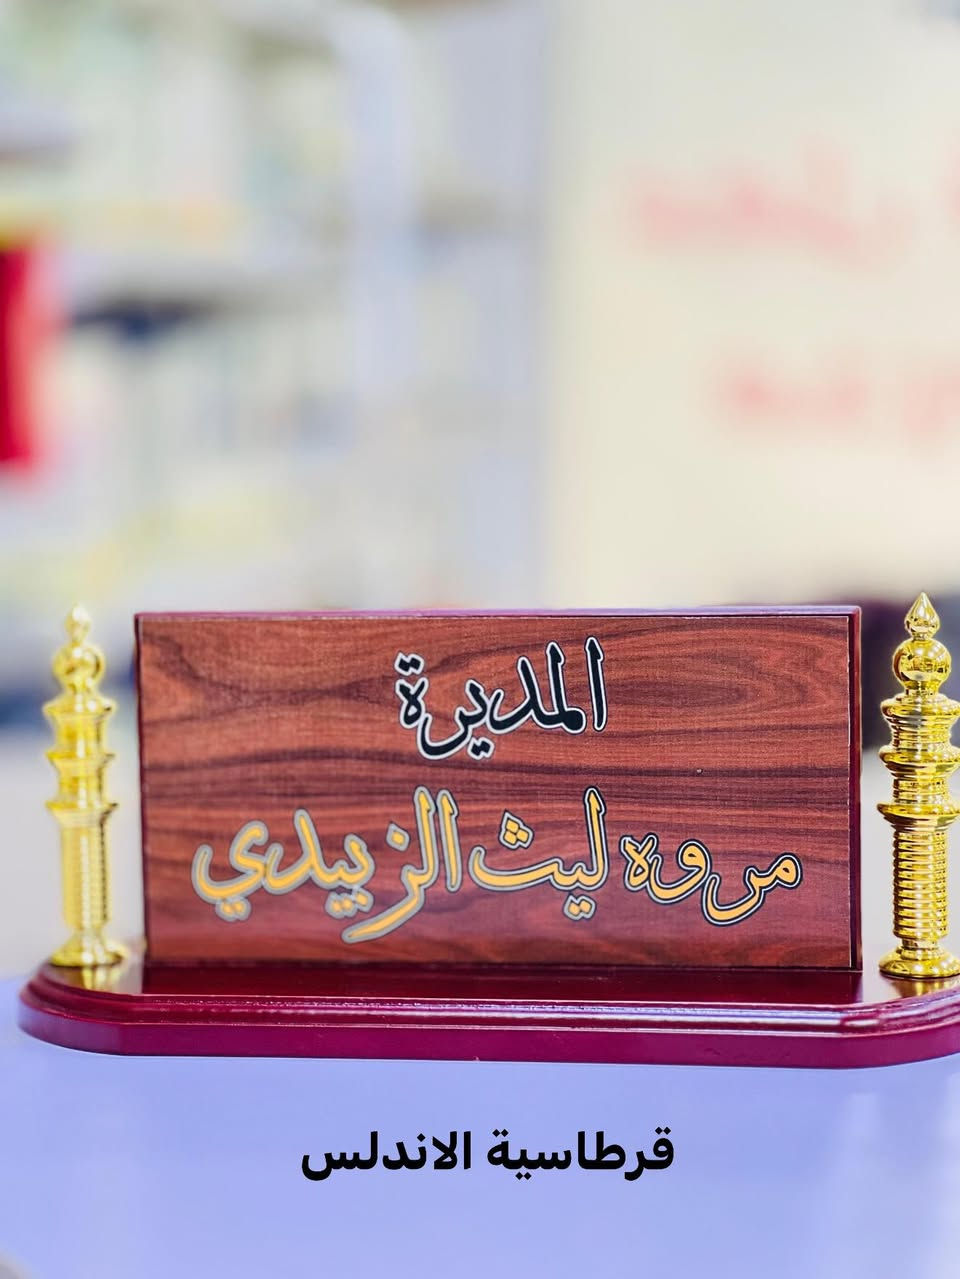 المديرة
مروه ليث الزبيدي
قرطاسية الاندلس